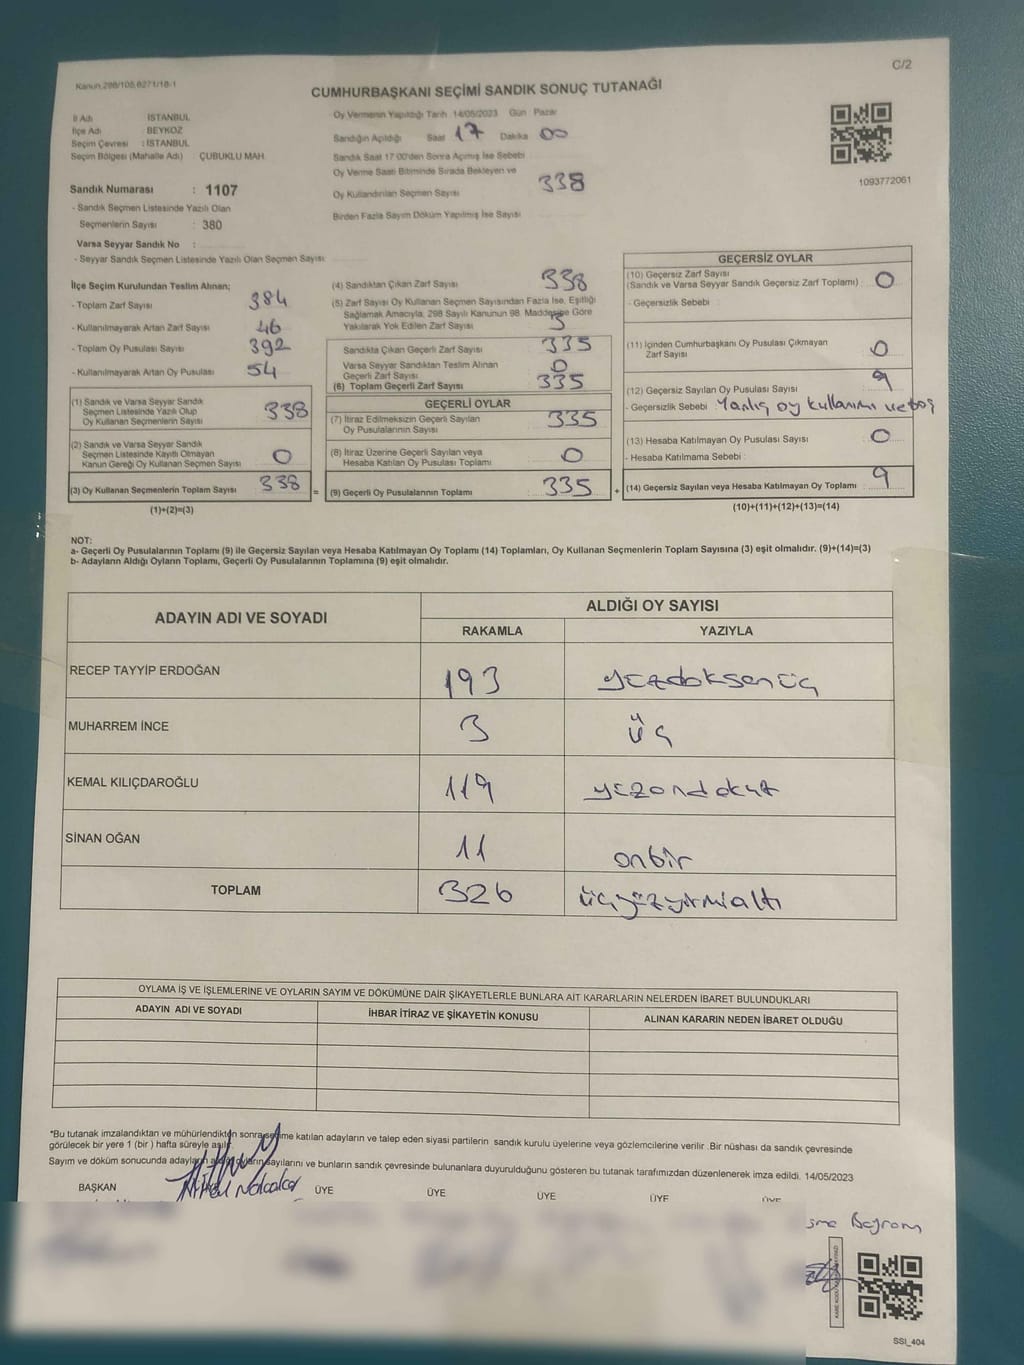 C/2
Kanun:298/105,6271/18-1
CUMHURBAŞKANI SEÇİMİ SANDIK SONUÇ TUTANAĞI
İl Adı İSTANBUL
İlçe Adı BEYKOZ
Seçim Çevresi : İSTANBUL
Seçim Bölgesi (Mahalle Adı) ÇUBUKLU MAH.
Sandık Numarası : 1107
- Sandık Seçmen Listesinde Yazılı Olan
Seçmenlerin Sayısı : 380
Varsa Seyyar Sandık No :
- Seyyar Sandık Seçmen Listesinde Yazılı Olan Seçmen Sayısı
Oy Vermenin Yapıldığı Tarih 14/05/2023 Gün Pazar
Sandığın Açıldığı Saat 17 Dakika 00
Sandık Saat 17:00'den Sonra Açmış İse Sebebi
Oy Verme Saati Bitiminde Sırada Bekleyen ve
Oy Kullandırılan Seçmen Sayısı 338
Birden Fazla Sayım Döküm Yapılmış İse Sayısı
1093772061
İlçe Seçim Kurulundan Teslim Alınan;
- Toplam Zarf Sayısı 384
- Kullanılmayarak Artan Zarf Sayısı 46
- Toplam Oy Pusulası Sayısı 392
- Kullanılmayarak Artan Oy Pusulası 54
(1) Sandık ve Varsa Seyyar Sandık
Seçmen Listesinde Yazılı Olup
Oy Kullanan Seçmenlerin Sayısı 338
(2) Sandık ve Varsa Seyyar Sandık
Seçmen Listesinde Kayıtlı Olmayan
Kanun Gereği Oy Kullanan Seçmen Sayısı 0
(3) Oy Kullanan Seçmenlerin Toplam Sayısı 338 =
(1)+(2)=(3)
(4) Sandıktan Çıkan Zarf Sayısı 338
(5) Zarf Sayısı Oy Kullanan Seçmen Sayısından Fazla İse, Eşitliği
Sağlamak Amacıyla, 298 Sayılı Kanunun 98. Maddesine Göre
Yakılarak Yok Edilen Zarf Sayısı 3
Sandıkta Çıkan Geçerli Zarf Sayısı 335
Varsa Seyyar Sandıktan Teslim Alınan
Geçerli Zarf Sayısı 0
(6) Toplam Geçerli Zarf Sayısı 335
GEÇERLİ OYLAR
(7) İtiraz Edilmeksizin Geçerli Sayılan
Oy Pusulalarının Sayısı 335
(8) İtiraz Üzerine Geçerli Sayılan veya
Hesaba Katılan Oy Pusulası Toplamı 0
(9) Geçerli Oy Pusulalarının Toplamı 335 +
GEÇERSİZ OYLAR
(10) Geçersiz Zarf Sayısı
(Sandık ve Varsa Seyyar Sandık Geçersiz Zarf Toplamı) 0
- Geçersizlik Sebebi
(11) İçinden Cumhurbaşkanı Oy Pusulası Çıkmayan
Zarf Sayısı 0
(12) Geçersiz Sayılan Oy Pusulası Sayısı 9
- Geçersizlik Sebebi Yanlış oy kullanımı ve boş
(13) Hesaba Katılmayan Oy Pusulası Sayısı 0
- Hesaba Katılmama Sebebi
(14) Geçersiz Sayılan veya Hesaba Katılmayan Oy Toplamı 9
(10)+(11)+(12)+(13)=(14)
NOT:
a- Geçerli Oy Pusulalarının Toplamı (9) ile Geçersiz Sayılan veya Hesaba Katılmayan Oy Toplamı (14) Toplamları, Oy Kullanan Seçmenlerin Toplam Sayısına (3) eşit olmalıdır. (9)+(14)=(3)
b- Adayların Aldığı Oyların Toplamı, Geçerli Oy Pusulalarının Toplamına (9) eşit olmalıdır.
ADAYIN ADI VE SOYADI ALDIĞI OY SAYISI
RAKAMLA YAZIYLA
RECEP TAYYİP ERDOĞAN 193 yüzdoksenüç
MUHARREM İNCE 3 üç
KEMAL KILIÇDAROĞLU 119 yüzondokuz
SİNAN OĞAN 11 onbir
TOPLAM 326 üçyüzyirmialtı
OYLAMA İŞ VE İŞLEMLERİNE VE OYLARIN SAYIM VE DÖKÜMÜNE DAİR ŞİKAYETLERLE BUNLARA AİT KARARLARIN NELERDEN İBARET BULUNDUKLARI
ADAYIN ADI VE SOYADI İHBAR İTİRAZ VE ŞİKAYETİN KONUSU ALINAN KARARIN NEDEN İBARET OLDUĞU
*Bu tutanak imzalandıktan ve mühürlendikten sonra seçime katılan adayların ve talep eden siyasi partilerin sandık kurulu üyelerine veya gözlemcilerine verilir .Bir nüshası da sandık çevresinde
görülecek bir yere 1 (bir ) hafta süreyle asılır.
Sayım ve döküm sonucunda adayların aldığı oyların sayılarını ve bunların sandık çevresinde bulunanlara duyurulduğunu gösteren bu tutanak tarafımızdan düzenlenerek imza edildi. 14/05/2023
BAŞKAN ÜYE ÜYE ÜYE ÜYE ÜYE
Bayram
SSI_404